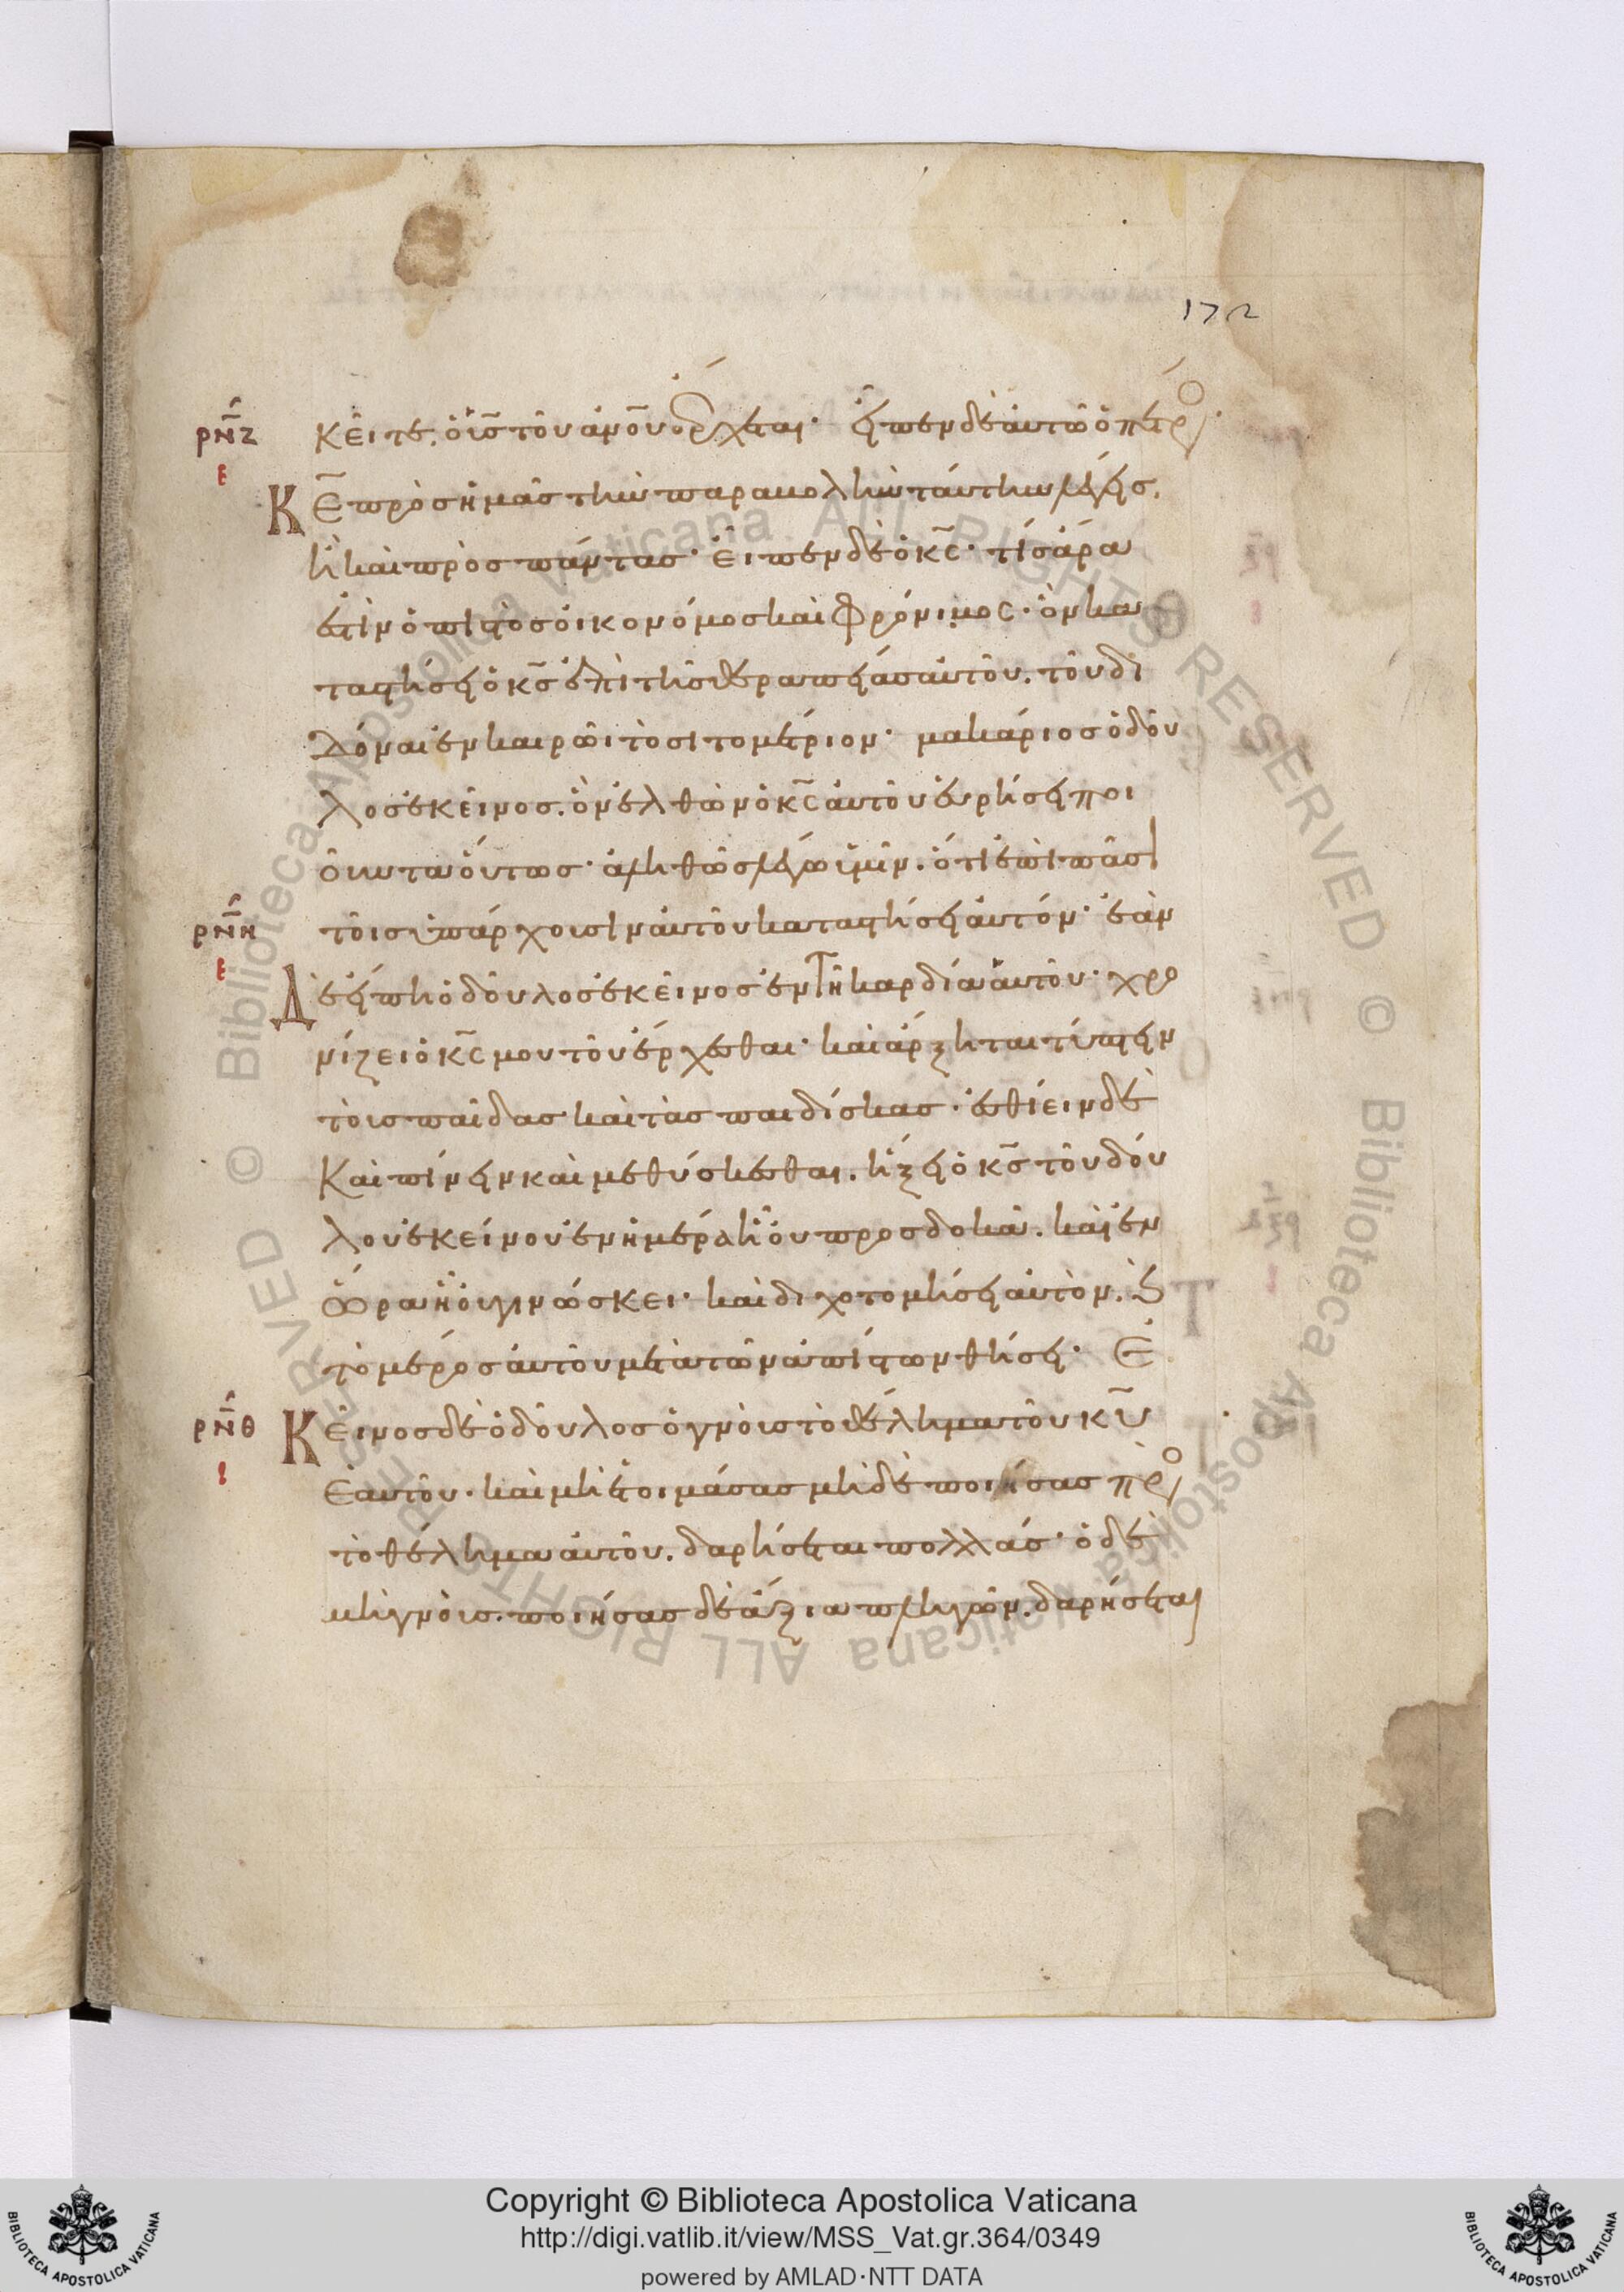 172
ρν̅ζ
ε
κεῖτε. ὁ υἱς̅ τοῦ ἀν̅ου ἔρχεται· εἶπεν δὲ αὐτῶ ὁ πέτρο·
Κε̅ πρὸς ἡμᾶς τὴν παραβολὴν ταύτην λέγεις.
ἢ καὶ πρὸς πάντας· εἶπεν δὲ ὁ κς̅· τίς ἄρα
ἐστὶν ὁ πιστὸς οἰκονόμος καὶ φρόνιμος· ὃν κα
ταστήσει ὁ κς̅ ἐπὶ τῆς θεραπείας αὐτοῦ. τοῦ δι
δόναι ἐν καιρῶι τὸ σιτομέτριον· μακάριος ὁ δοῦ
λος ἐκεῖνος. ὃν ἐλθὼν ὁ κς̅ αὐτοῦ εὑρήσει ποι
οῦντα οὕτως· ἀληθῶς λέγω ὑμῖν. ὅτι ἐπὶ πᾶσι
τοῖς ὑπάρχουσιν αὐτοῦ καταστήσει αὐτόν· ἐὰν
ρν̅η
ε
Δὲ εἴπη ὁ δοῦλος ἐκεῖνος ἐν τῆ καρδία αὐτοῦ· χρο
νίζει ὁ κς̅ μου τοῦ ἔρχεσθαι· καὶ ἄρξηται τύπτειν
τοὺς παῖδας καὶ τὰς παιδίσκας· ἐσθίειν δὲ
Καὶ πίνειν καὶ μεθύσκεσθαι. ἥξει ὁ κς̅ τοῦ δού
λου ἐκείνου ἐν ἡμέρα ἧ οὐ προσδοκᾶ. καὶ ἐν
ὥρα ἧ οὐ γινώσκει· καὶ διχοτομήσει αὐτὸν. ϗ
τὸ μέρος αὐτοῦ μετὰ τῶν ἀπίστων θήσει· Ἐ
ρν̅θ
ι
Κεῖνος δὲ ὁ δοῦλος ὁ γνοὺς τὸ θέλημα τοῦ κυ̅
ἑαυτοῦ· καὶ μὴ ἑτοιμάσας μηδὲ ποιήσας πρὸ
τὸ θέλημα αὐτοῦ. δαρήσεται πολλάς· ὁ δὲ
μὴ γνοὺς. ποιήσας δὲ ἄξια πληγῶν. δαρήσεται
Copyright © Biblioteca Apostolica Vaticana
http://digi.vatlib.it/view/MSS_Vat.gr.364/0349
powered by AMLAD·NTT DATA